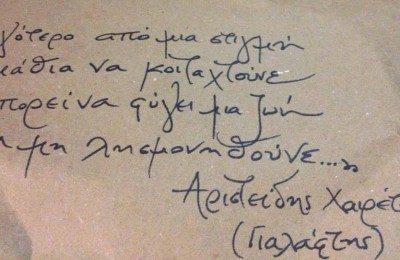 γότερο από μια στιγμή
μάθια να κοιταχτούνε
πορεί να φύγει μια ζωή
α μη λησμονηθούνε.....,
Αριστείδης Χαιρέτ
(Γιαλάφτης)